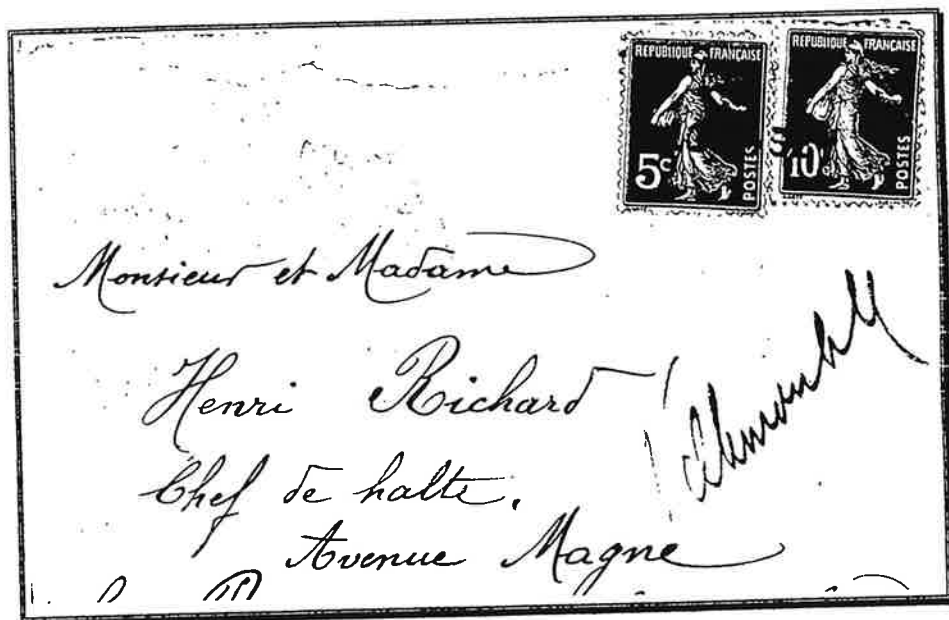 REPUBLIQUE FRANÇAISE
5c
POSTES
REPUBLIQUE FRANÇAISE
10c
POSTES
Monsieur et Madame
Henri Richard
Chef de halte,
Avenue Magne